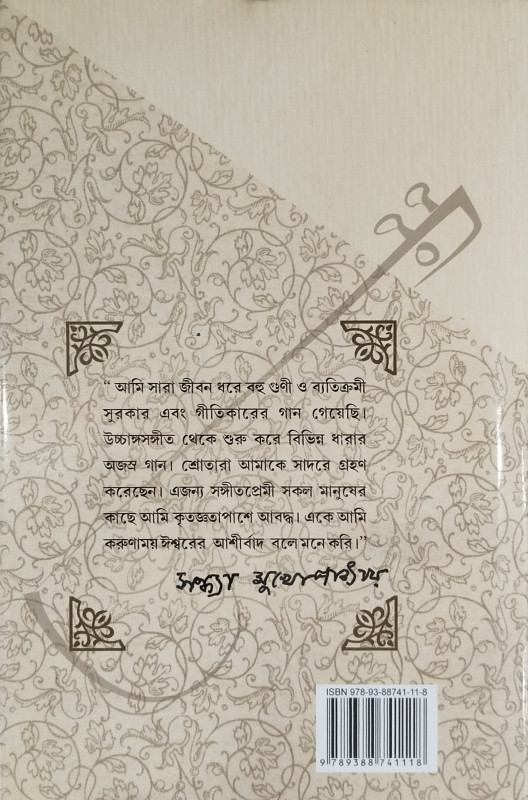 “ আমি সারা জীবন ধরে বহু গুণী ও ব্যতিক্রমী
সুরকার এবং গীতিকারের গান গেয়েছি।
উচ্চাঙ্গসঙ্গীত থেকে শুরু করে বিভিন্ন ধারার
অজস্র গান। শ্রোতারা আমাকে সাদরে গ্রহণ
করেছেন। এজন্য সঙ্গীতপ্রেমী সকল মানুষের
কাছে আমি কৃতজ্ঞতাপাশে আবদ্ধ। একে আমি
করুণাময় ঈশ্বরের আশীর্বাদ বলে মনে করি।”
সন্ধ্যা মুখোপাধ্যায়
ISBN 978-93-88741-11-8
9 789388 741118